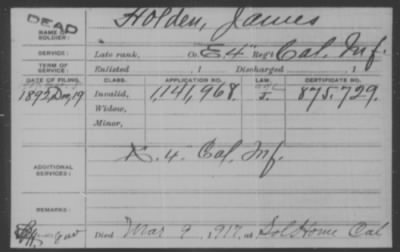 DEAD
NAME OF SOLDIER: Holden, James
SERVICE: Late rank, Co. E 4" Reg't Cal. Inf.
TERM OF SERVICE: Enlisted , 1 Discharged , 1
DATE OF FILING. CLASS. APPLICATION NO. LAW. CERTIFICATE NO.
1892, Dec, 19 Invalid, 1,141,968. J. 875.729.
Widow,
Minor,
ADDITIONAL SERVICES: K. 4" Cal. Inf.
REMARKS:
Died Mar 9, 1917, at Sol Home Cal